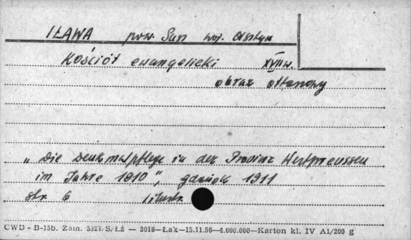 IŁAWA pow. Susz woj. Olsztyn
Kościół ewangelicki XVIII w.
obraz ołtarzowy
„Die Denkmalpflege in der Provinz Westpreussen
im Jahre 1910", Gdańsk 1911
str. 6
CWD - B-15b. Zam. S/Łż — 3016 — Łak — 15.11.56 — 4.000.000 — Karton kl. IV A1/200 g